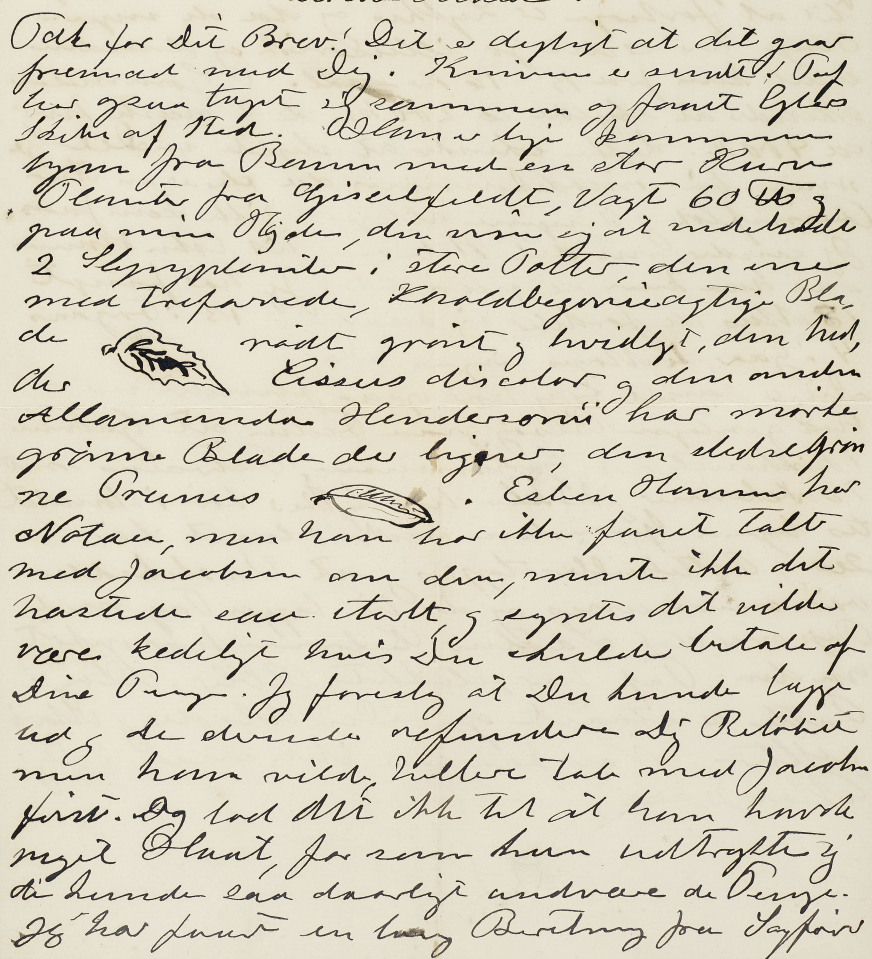 Tak for Dit Brev! Det er dejligt at det gaar
fremad med Dig. Kniven er sendt! Tuf
har ogsaa taget sig sammen og faaet
Skibe af Sted. Han er lige kommen
hjem fra Banen med en stor Kurv
Planter fra Gisselfeldt, Vægt 60 ℔ og
paa min Højde, den viste sig at indeholde
2 Slyngplanter i store Potter, den ene
med trefarvede, Knoldbegonieagtige Bla-
de rødt grønt og hvidligt, den hed-
der Cissus discolor og den anden
Allamanda Hendersonii har mørke
grønne Blade der ligner den stedsegrøn
ne Prunus . Esben Hansen har
Notaen, men han har ikke faaet talt
med Jacobsen om den, mente ikke det
hastede saa stærkt, og syntes det vilde
være kedeligt hvis Du skulde betale af
Dine Penge. Jeg foreslog at Du kunde lægge
ud og de derude refundere Dig Beløbet
men han vilde hellere tale med Jacobsen
først. Og lod det ikke til at han havde
noget Hast, for som han udtrykte sig
de kunde saa daarligt undvære de Penge.
Jeg har faaet en lang Beretning fra Sagfører